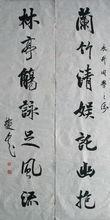 蘭竹清娱託幽抱
林亭觴詠足風流